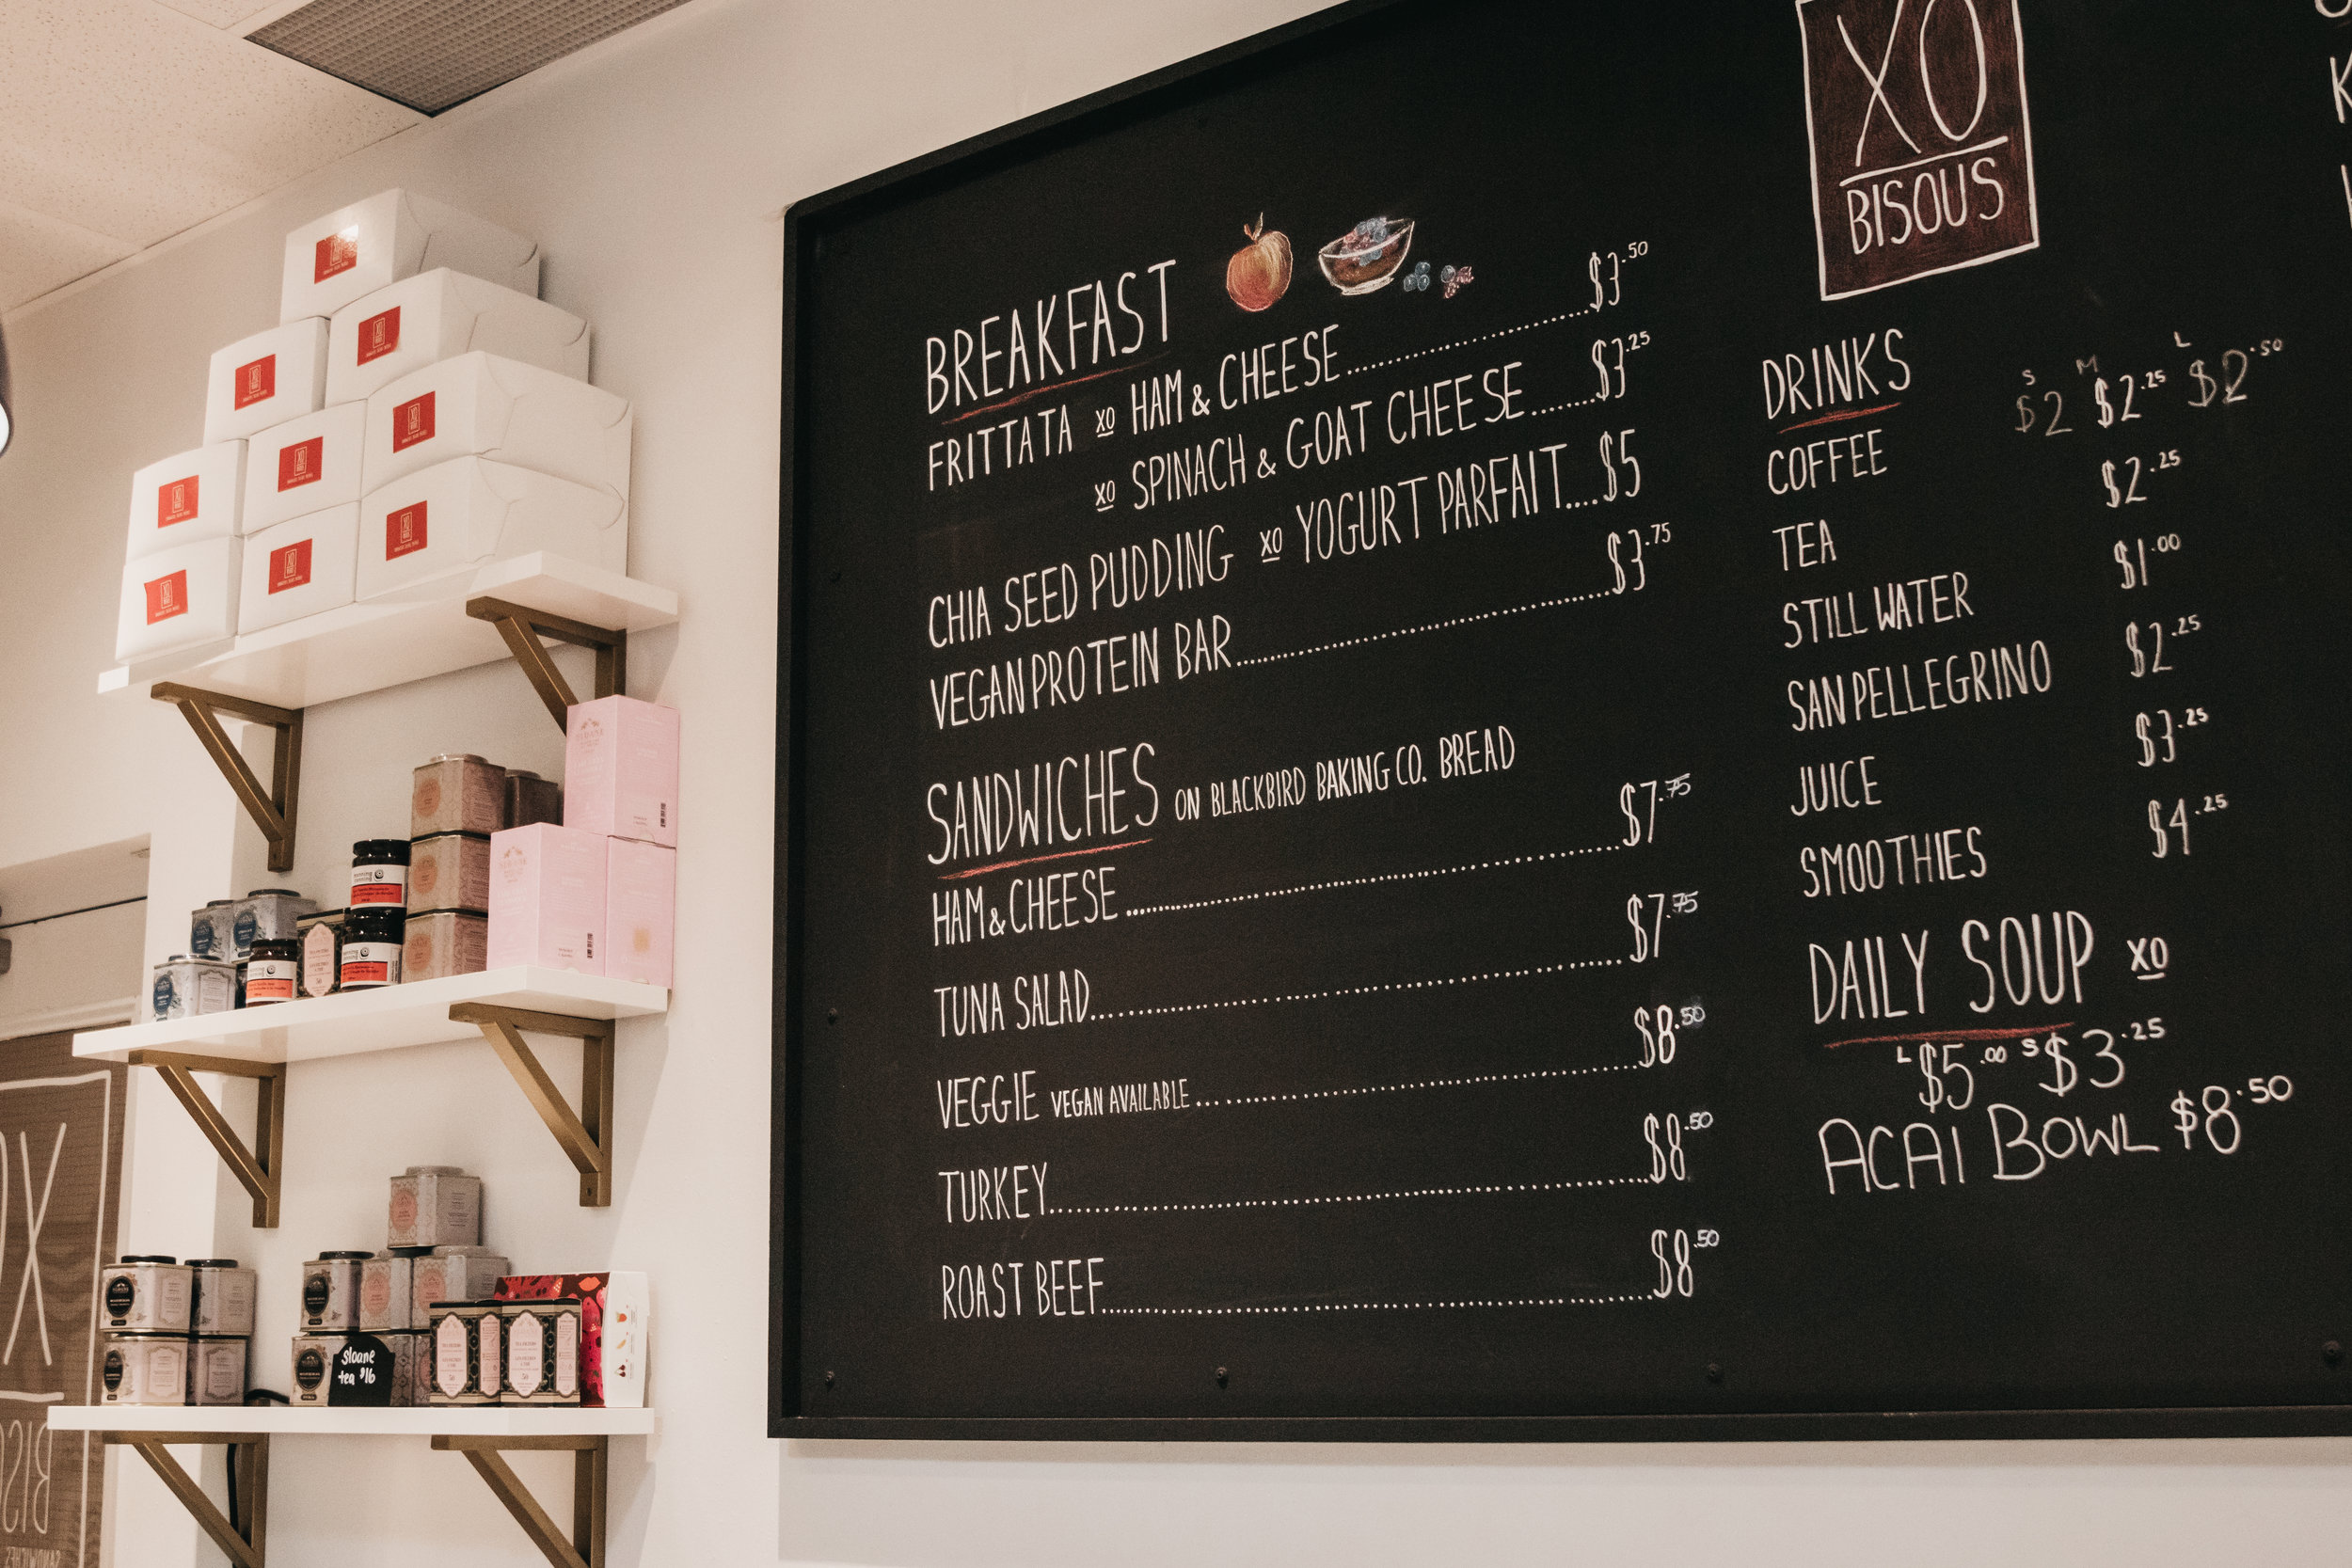 XO
BISOUS
BREAKFAST
FRITTATA XO HAM & CHEESE..........$3.50
XO SPINACH & GOAT CHEESE........$3.25
CHIA SEED PUDDING XO YOGURT PARFAIT....$5
VEGAN PROTEIN BAR..........$3.75
SANDWICHES ON BLACKBIRD BAKING CO. BREAD
HAM & CHEESE..........$7.75
TUNA SALAD..........$7.75
VEGGIE VEGAN AVAILABLE..........$8.50
TURKEY..........$8.50
ROAST BEEF..........$8.50
DRINKS
S M L
COFFEE $2 $2.25 $2.50
TEA $2.25
STILL WATER $1.00
SAN PELLEGRINO $2.25
JUICE $3.25
SMOOTHIES $4.25
DAILY SOUP XO
L $5.00 S $3.25
ACAI BOWL $8.50
Sloane
tea $16